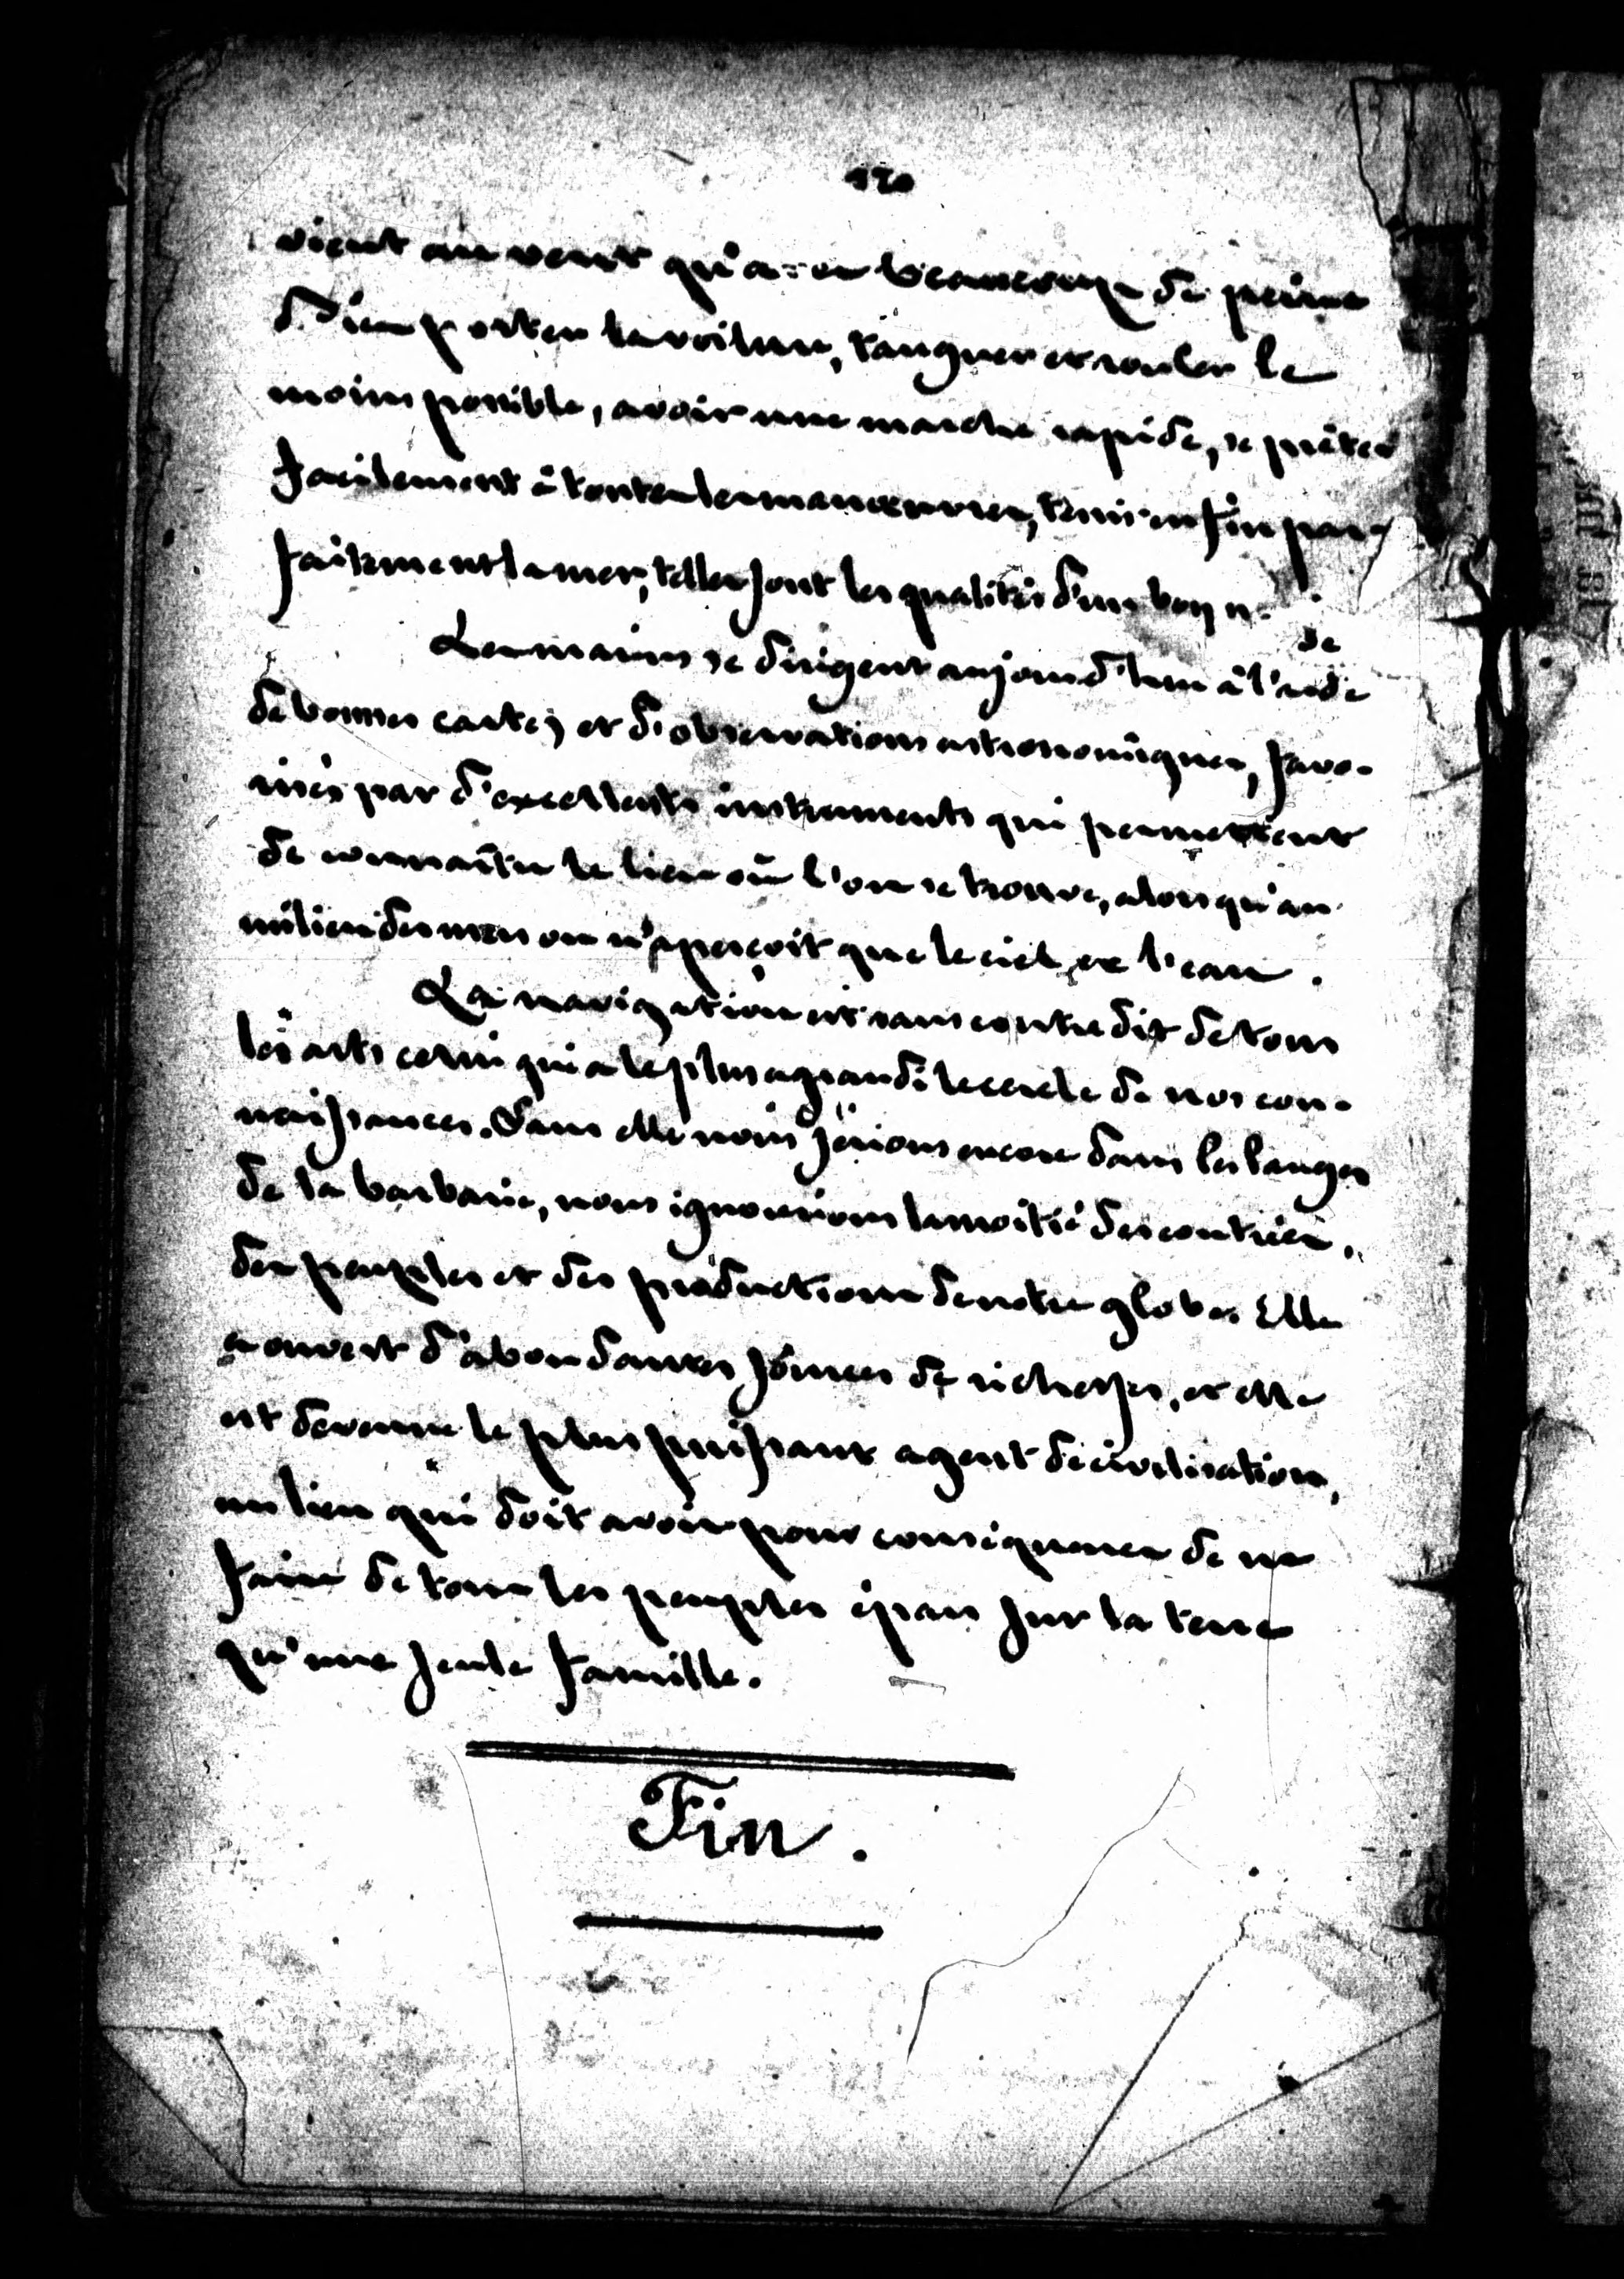 120
vient au vent qu'avec beaucoup de peine
Bien porter la voilure, tanguer et rouler le
moins possible, avoir une marche rapide, se prêter
facilement à toutes les manœuvres, tenir enfin par-
faitement la mer, telles sont les qualités d'un bon n.
Les marins se dirigent aujourd'hui à l'aide
de
de bonnes cartes et d'observations astronomiques, favo-
risés par d'excellents instruments qui permettent
de connaître le lieu où l'on se trouve, alors qu'au
milieu des mers on n'aperçoit que le ciel et l'eau.
La navigation est sans contre dit de tous
les arts celui qui a le plus agrandi le cercle de nos con-
naissances. Sans elle nous serions encore dans les langes
de la barbarie, nous ignorerions la moitié des contrées,
des peuples et des productions de notre globe. Elle
a ouvert d'abondantes sources de richesses, et elle
est devenue le plus puissant agent de civilisation,
un lien qui doit avoir pour conséquence de ne
faire de tous les peuples épars sur la terre
qu'une seule famille.
Fin.